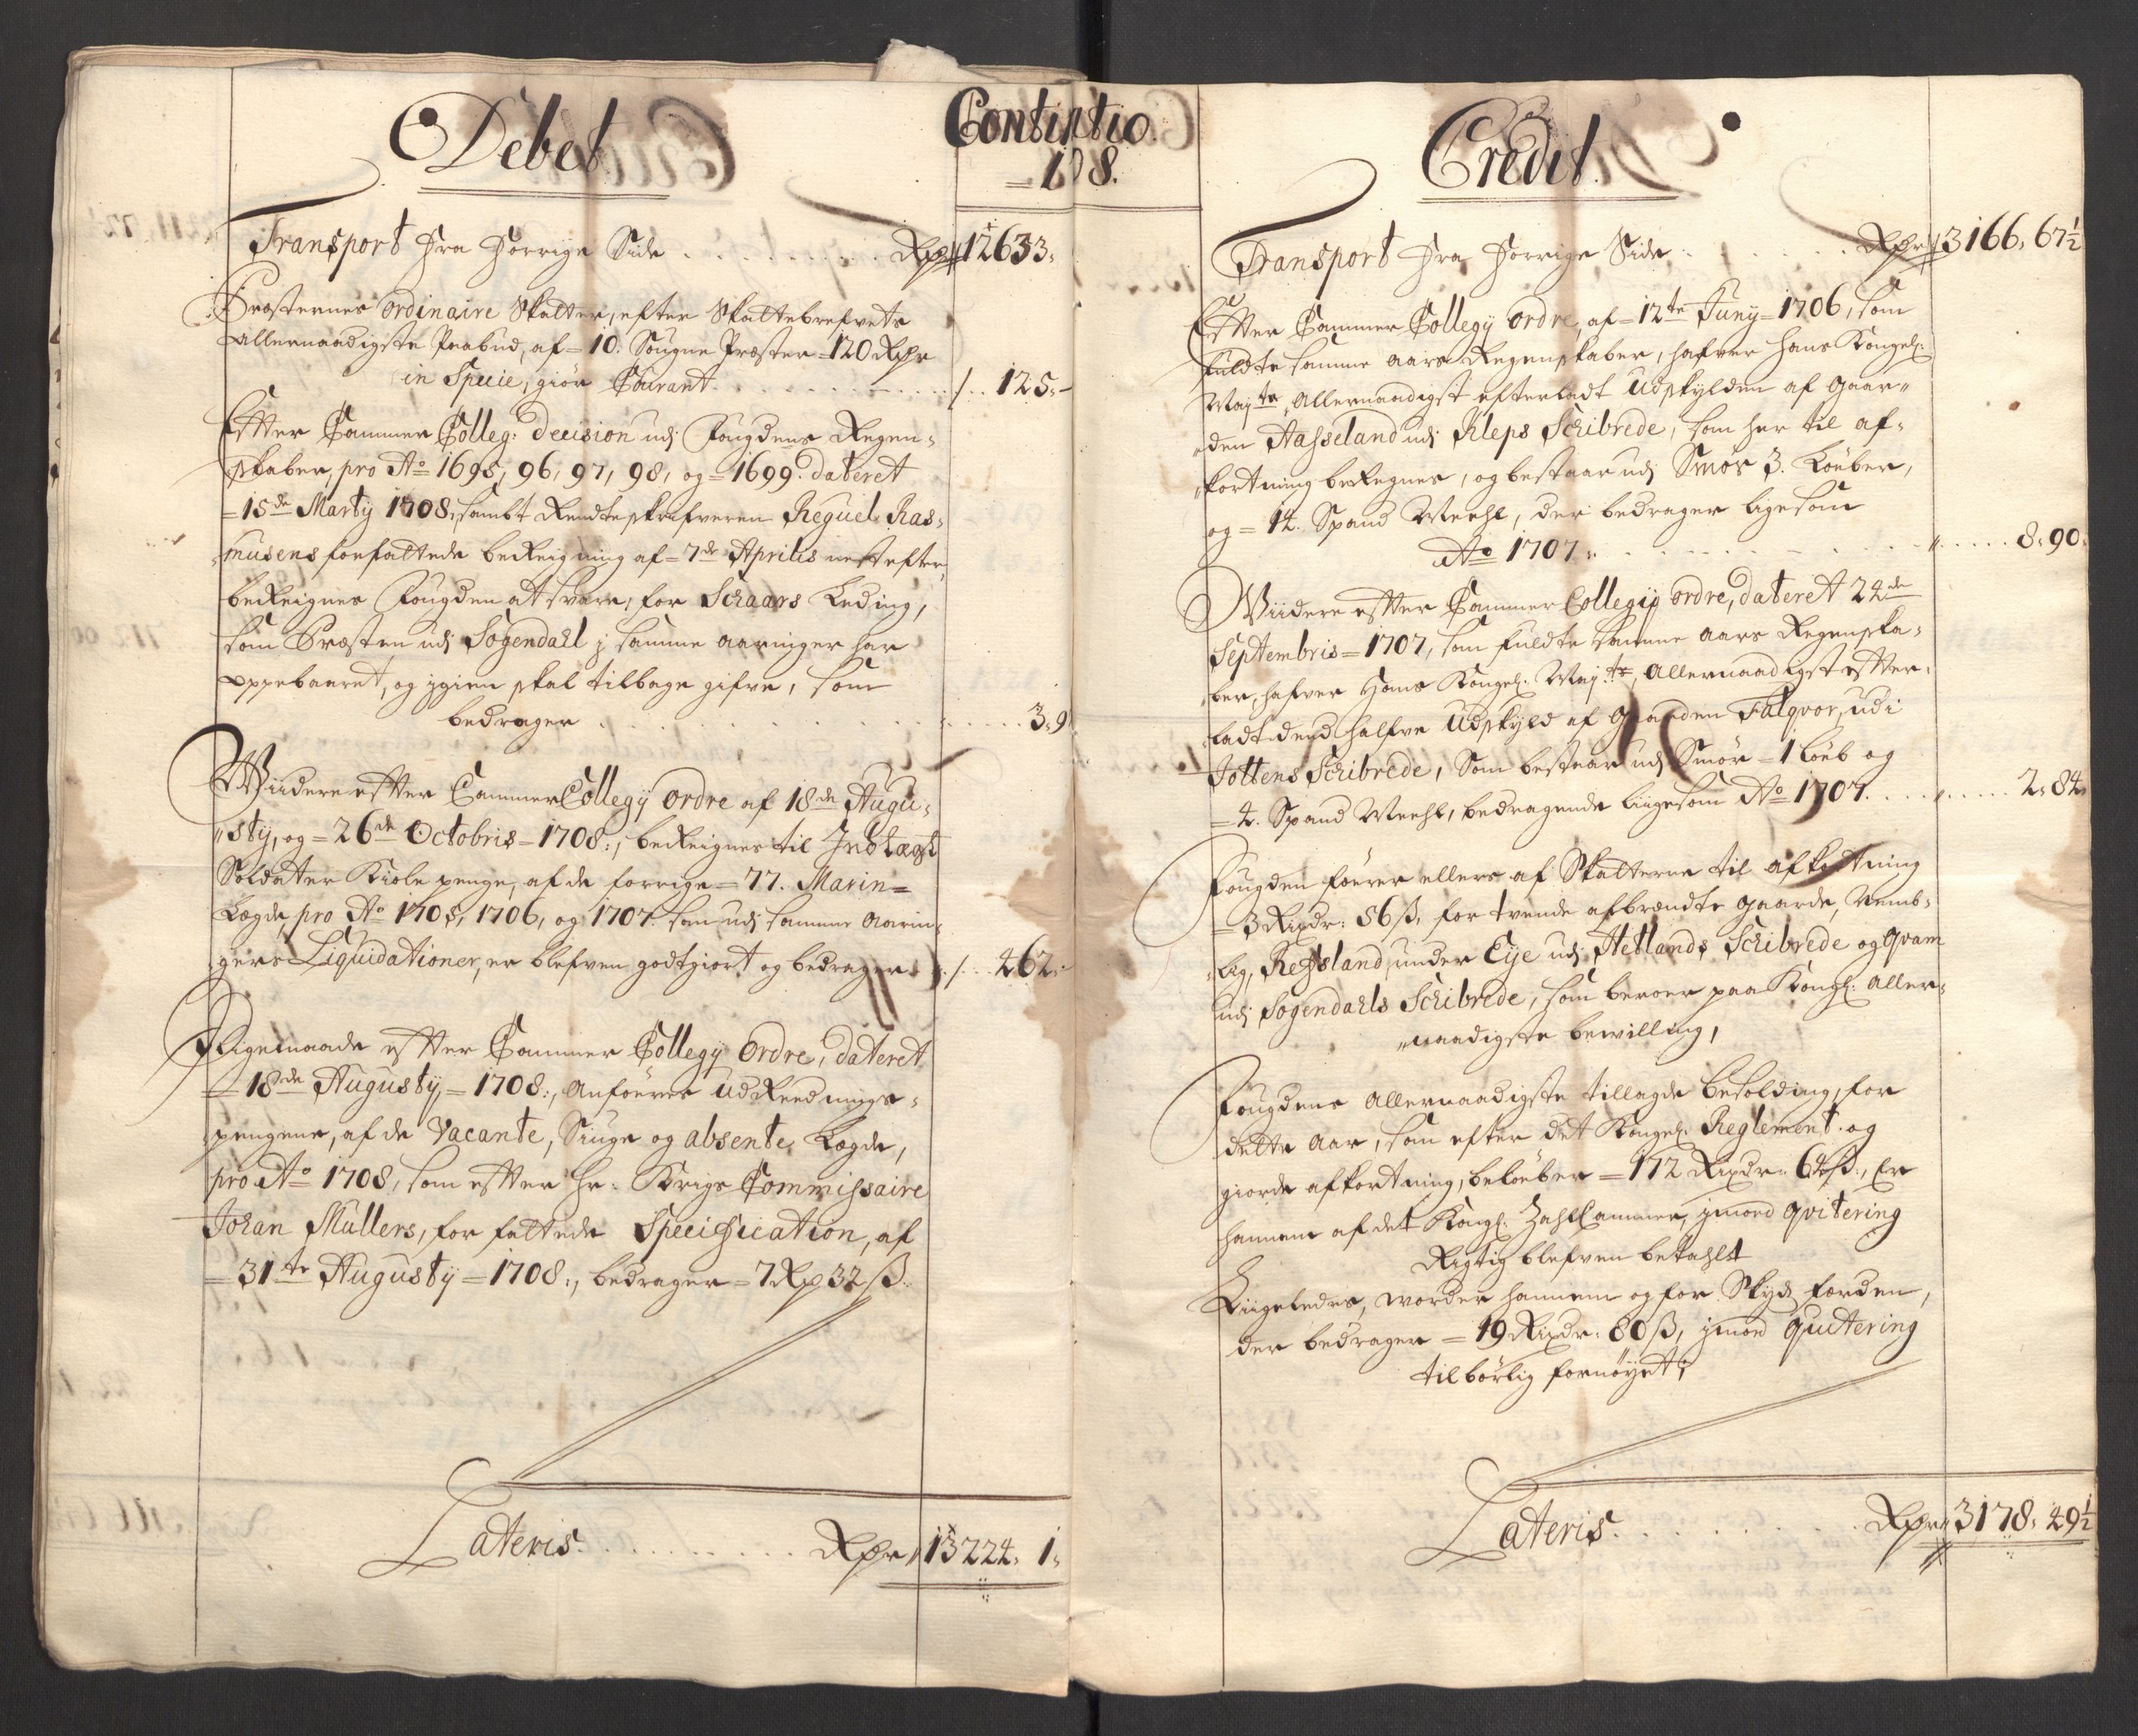 Debet
Transport Fra Forrige Side . . . . Rdr 12633:
Præsternes Ordinaire Skatter, efter Skattebrefvets
Allernaadigste Paabud, af = 10. Sougne Præster = 120 Rdr
in Specie, giør Courant . . . . 125: -
Efter Cammer Colleg: Decision udi Fougdens Regen-
skaber, pro Ao 1695, 96, 97, 98, og = 1699. dateret
= 15de Marty 1708, sambt Rendteskrifveren Reguel Ras-
musens forfattede beReigning af = 7de Aprilis nest efter,
beReignes Fougden at svare, for Schaars Leding,
som Præsten udi Sogendahl j samme aaringer har
oppebaaret, og igien skal tilbage gifve, som
bedrager . . . . 3: 9
Viidere efter Cammer Collegy Ordre af 18de Augu-
sty, og = 26de Octobris = 1708:, beReignes til Indtægt
Soldater Kiole penge, af de forrige = 77. Marin=
Lægde, pro Ao 1705, 1706, og 1707. som udi samme Aarin-
gers Liquidationer, er blefven godtgiort og bedrager . / . 462:
Ligemaade efter Cammer Collegy Ordre, dateret
= 18de Augusty, = 1708:, Anføeres UdReednings-
pengene, af de Vacante, Siuge og absente Lægde,
pro Ao 1708, som efter Hr. Krigs Commissaire
Johan Mullers, forfattede Specification, af
= 31te Augusty = 1708:, bedrager = 7 Rdr 32 ß.
Lateris . . . . Rdr 13224: 1:
Contintio
= 1708.
Credit
Transport Fra Forrige Side . . . . Rdr 3166: 67½
Efter Cammer Collegy Ordre, af = 12te Juny = 1706, som
fuldte samme aars Regenskaber, hafver Hans Kongel:
Mayts Allernaadigst efterladt Udskylden af Gaar-
den Aasseland udi Kleps Schibrede, som her til af-
kortning beRegnes, og bestaar udj Smør 3. Løuber,
og = 14. Spand Meehl, der bedrager ligesom
Ao 1707: . . . . 8: 90:
Viidere efter Cammer Collegy ordre, dateret 24de
Septembris = 1707, som fuldte samme aars Regenska-
ber, hafver Hans Kongel: Maj:ts Allernaadigst efter-
ladt dend halfve Udskyld af Gaarden Falqvor, udi
Jottens Schibrede, Som bestaar udj Smør = 1 Løub og
= 4. Spand Meehl, bedragende liigesom Ao 1707. . . . 2: 84:
Fougden føerer ellers af Skatterne til afkortning
= 3 Rixdr: 56 ß, for tvende afbrendte Gaarde, Nemb-
lig, Regsland under Eye udj Hetlands Schibrede og Qvam
udj Sogendahls Schibrede, som beroer paa Kongl: Aller-
naadigste bewilling,
Fougdens Allernaadigste tillagde Besolding, for
dette Aar, som efter det Kongel: Reglement og
giorde afkortning, beløeber = 172 Rixdr: 64 ß:, Er
hannem af det Kongl: Zahlkammer, imod Qvitering
Rigtig blefven betahlt
Liigeledes, worder hannem og for Skyds færden,
der bedrager = 19 Rixdr: 80 ß, imod Qvitering
tilbørlig fornøyet;
Lateris . . . . Rdr 3178: 49½